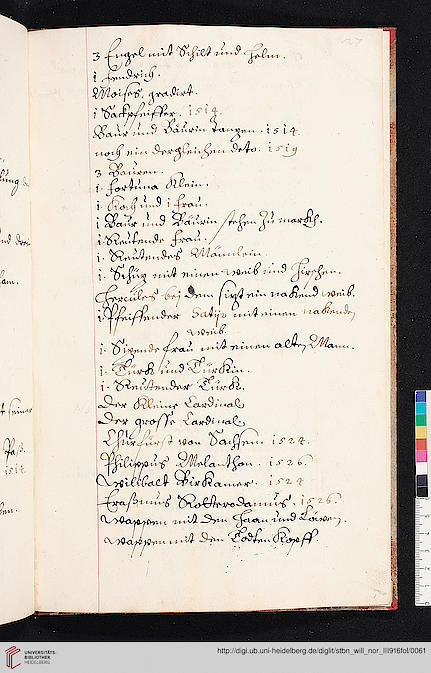 27
3 Engel mit Schilt und helm.
1 fendrich.
Moises, gradirt.
1 Sackpfeiffer. 1514
Baur und Bäurin tanzen. 1514
noch ein dergleichen deto. 1519
3 Bauren.
1. fortuna Klein.
1. Koch und 1 frau.
1 Baur und Bäurin stehen zu marckh.
1 Reutende frau.
1. Reutendes Männlein.
1. Schüz mit einen weib und hirschen.
Hercules bej dem sizt ein nakend weib.
1 Pfeiffender Satijr mit einen nakenden
weib.
1. Sizende frau mit einen alten Mann.
1. Türk und Türkin.
1. Reutender Türck.
Der Kleine Cardinal,
Der grosse Cardinal,
Churfürst von Sachsen. 1524.
Philippus Melanthon. 1526.
Wilibalt Birkamer. 1524
Eraßmus Rotterodamus. 1526.
Wappen mit den Haan und Löwen.
Wappen mit den Todten Kopff.
UNIVERSITÄTS-
BIBLIOTHEK
HEIDELBERG
http://digi.ub.uni-heidelberg.de/diglit/stbn_will_nor_III916fol/0061